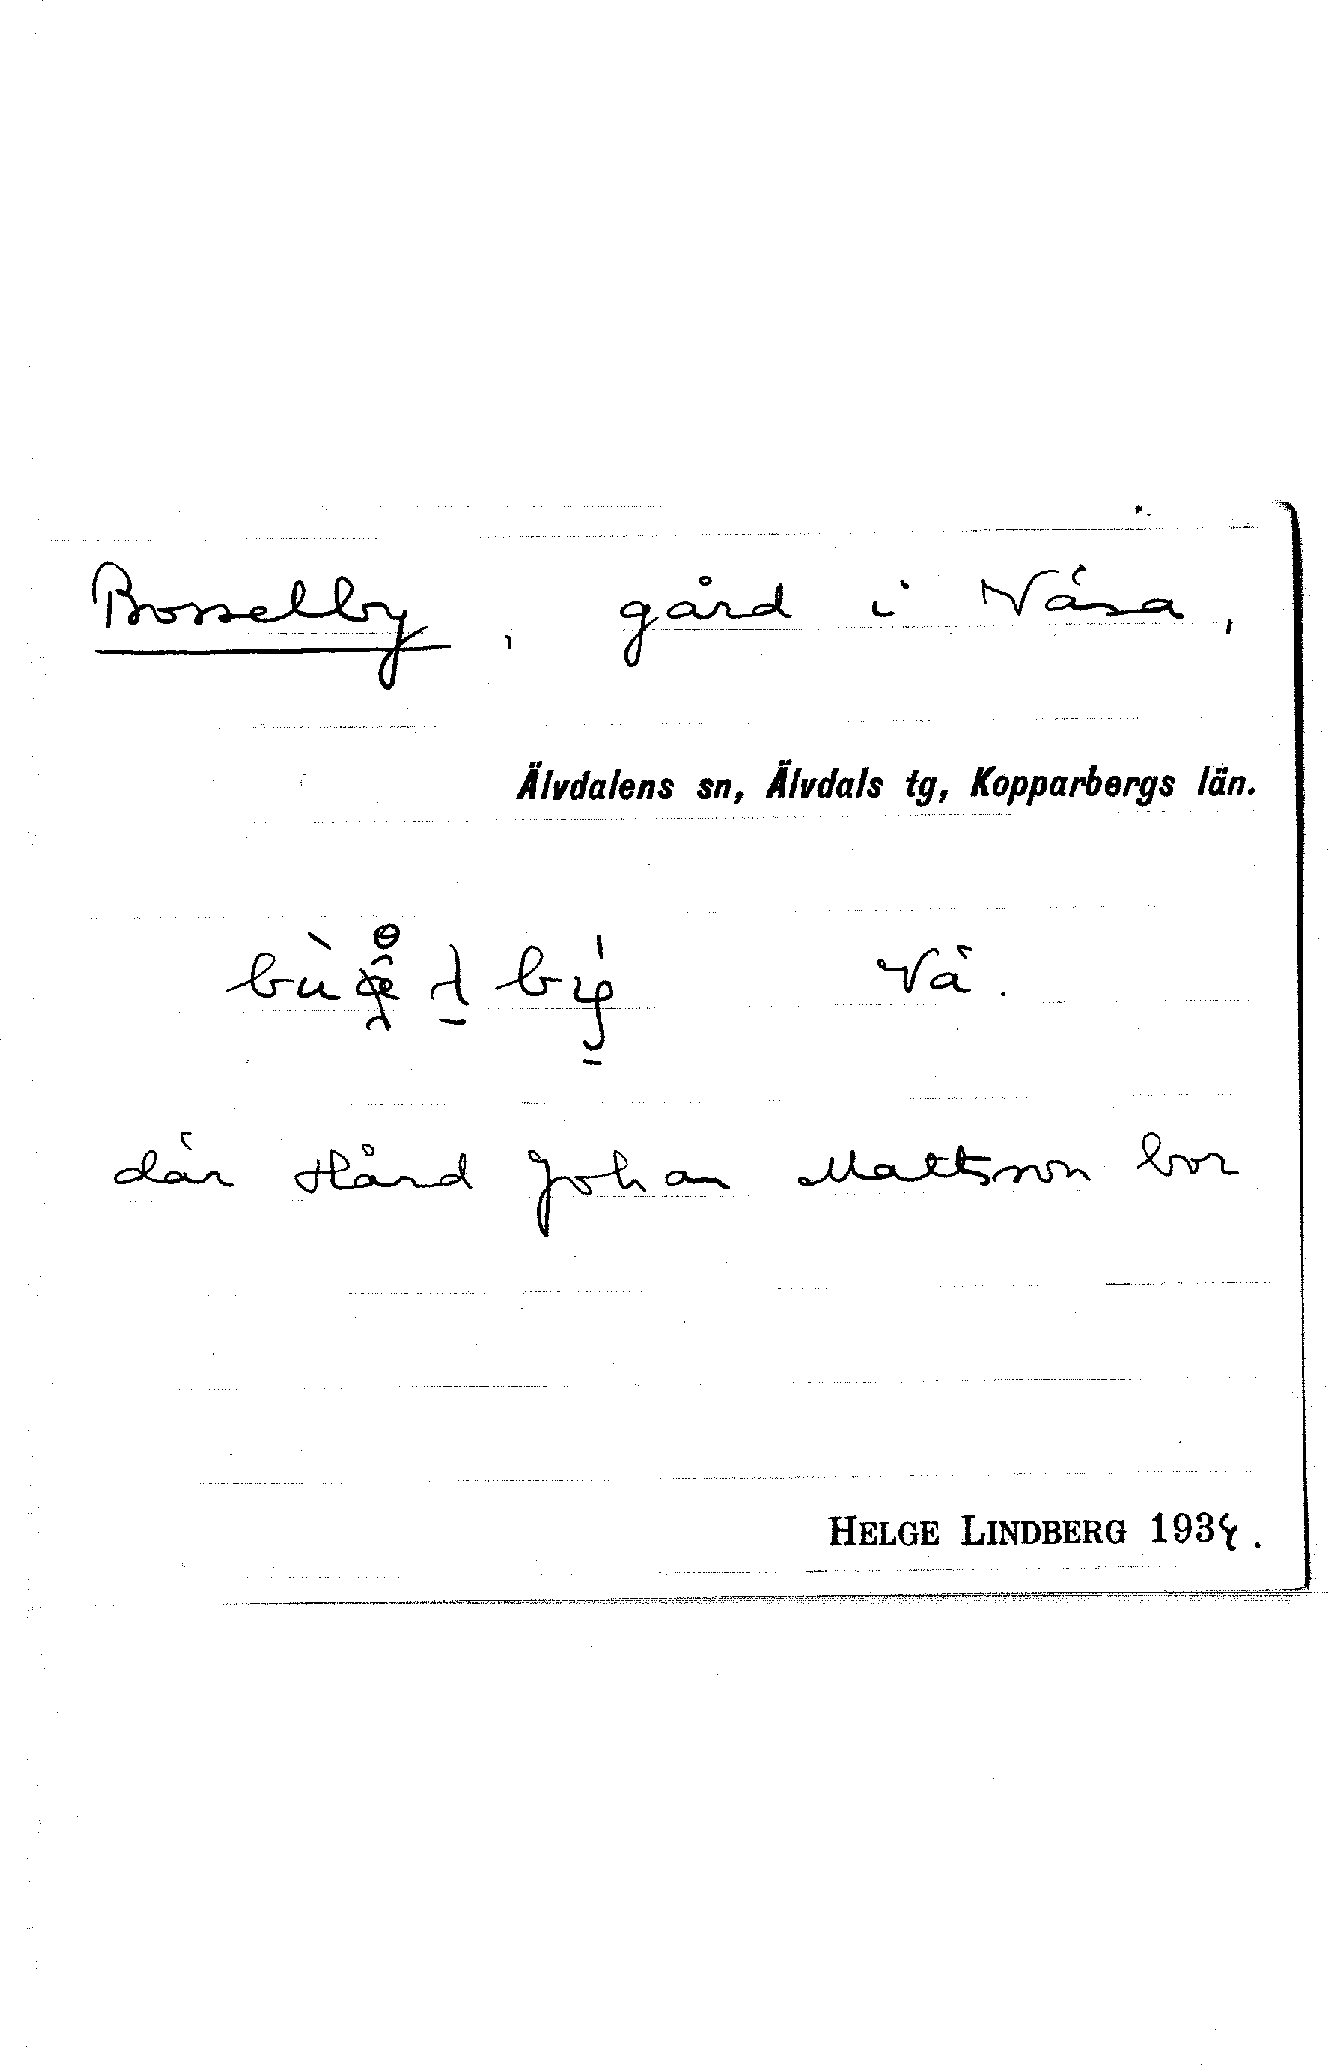 Bosselby, gård i Näsa,
Älvdalens sn, Älvdals tg, Kopparbergs län.
Nä.
där Hård Johan Mattsson bor
HELGE LINDBERG 1934.